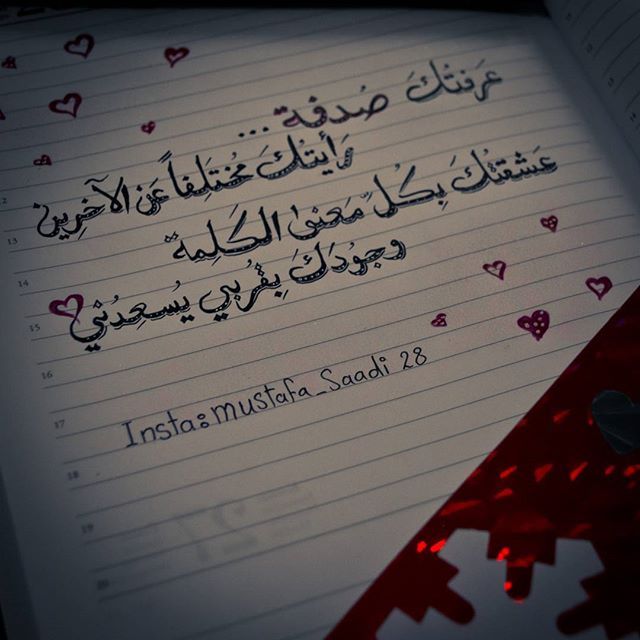 عَرفتُكَ صُدفة ...
رَأيتُكَ مُختَلِفاً عَن الآخرِين
عَشقتُكَ بِكُلِ مَعنىٰ الكَلِمة
وجُودَكَ بِقُربي يُسعِدُني
Insta:mustafa_Saadi 28
12
13
14
15
16
17
18
19
20